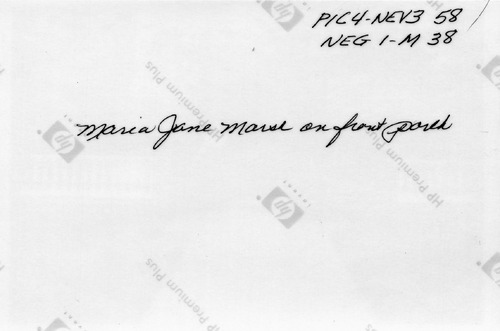 PIC4-NEV3 58
NEG 1-M 38
Maria Jane Marsh on front porch
HP Premium Plus
HP Premium Plus
HP Premium Plus
HP Premium Plus